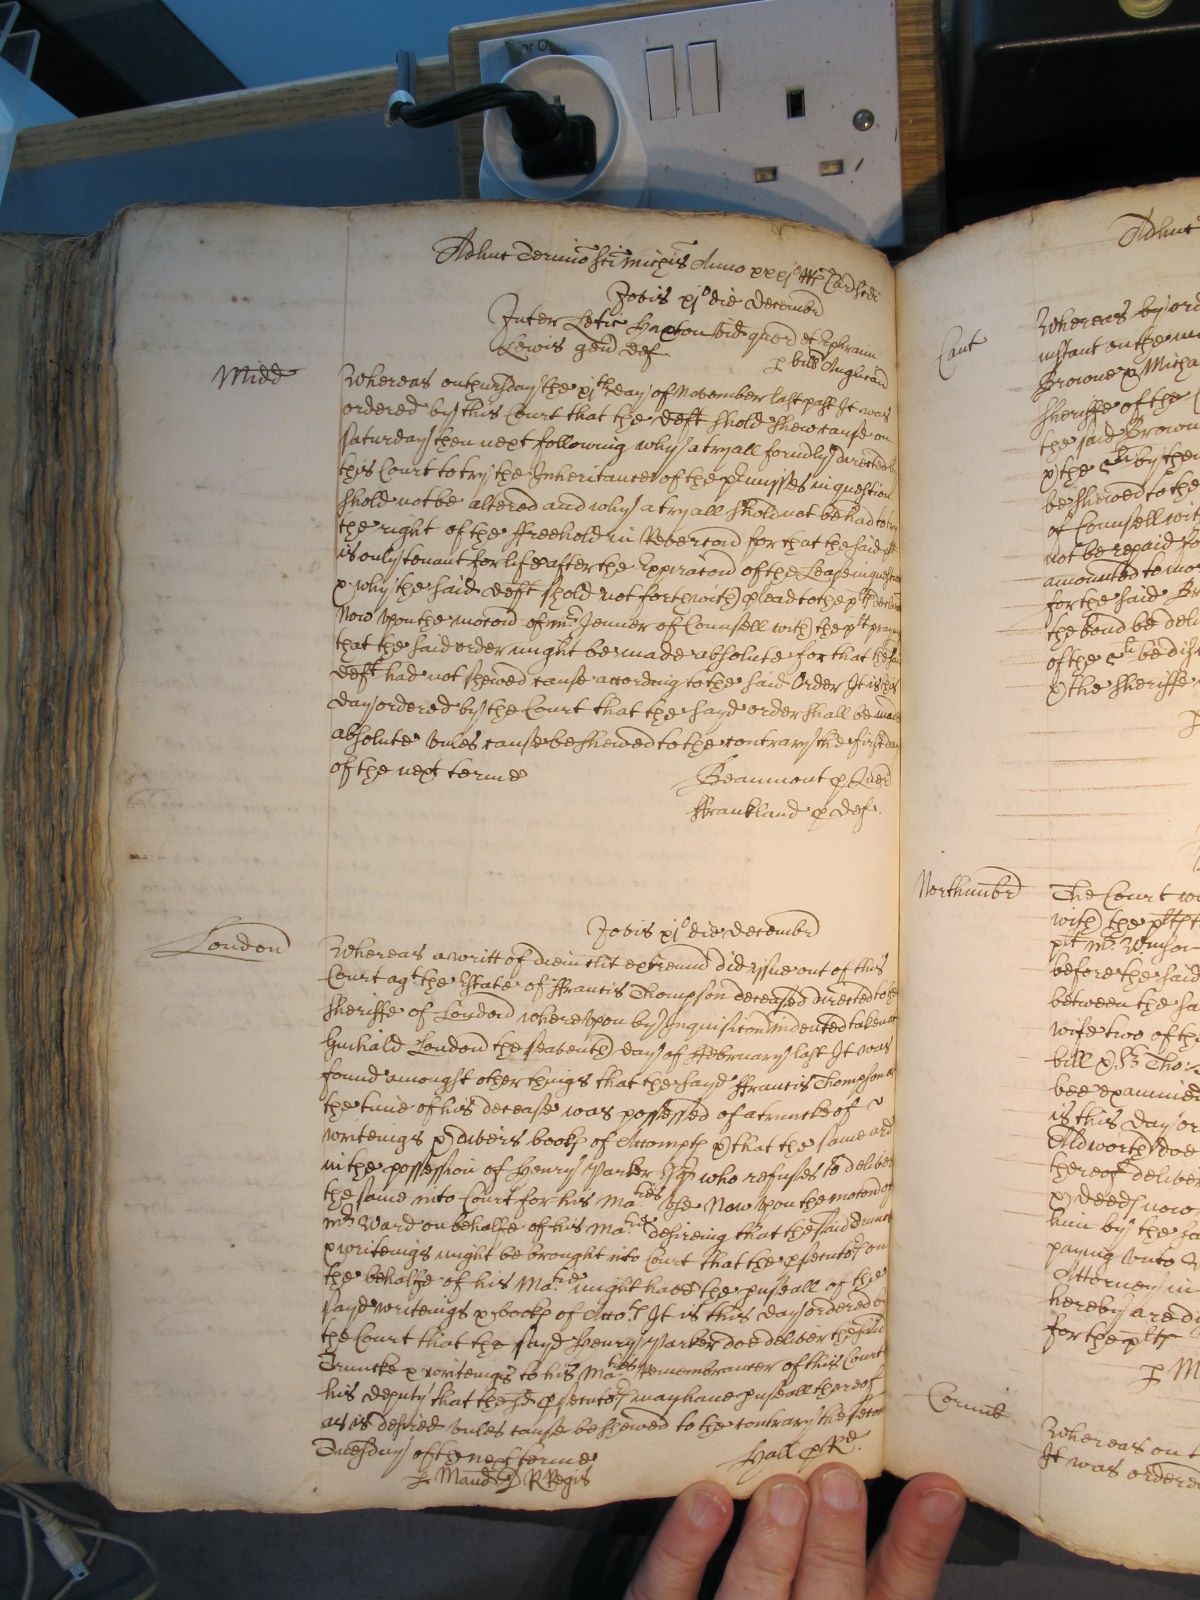 Adhuc Termino Sci Michis Anno xxxj
Jovis xj die Decembr
Inter Letic Haxton vid quer et Ephraim
Lewis gen def
p bill Anglican
Midd
Whereas on thursday the xjth day of November last past It was
ordered by this Court that the deft shold shew cause on
Saturday then next following why a tryall formerly directed
this Court to try the Inheritance of the pmisses in question
shold not be altered and why a tryall shold not be had to
the right of the ffreehold in Revercon for that the said plt
is only tenant for life after the Expiracon of the Lease in question
& why the said deft shold not forthwith plead to the plts
Now upon the mocon of mr Jenner of Counsell with the plt praying
that the said order might be made absolute for that the said
deft had not shewed cause according to the said Order It is this
day ordered by the Court that the sayd order shall be made
absolute unles cause be shewed to the contrary the first day
of the next terme
Beaumont p Quer
ffrankland p def
London
Jovis xj die Decembr
Whereas a writt of diem clit extremu did yssue out of this
Court agt the Estate of ffrancis Thompson deceased directed to the
Sheriffe of London whereupon by Inquisicon indented taken at
Guihald London the seaventh day of ffebruary last It was
found amongst other things that the sayd ffrancis Thompson at
the time of his decease was possessed of a truncke of
writeings & divers books of Accompts & that the same are
in the possession of Henry Parker Esqr who refuses to deliver
the same into Court for his Maties use Now upon the mocon of
mr Ward on behalfe of his Matie desireing that the said Trunck
& writeings might be brought into Court that the psecutor on
the behalfe of his Matie might have the pusall of the
sayd writeings & books of Accots It is this day ordered by
the Court that the sayd Henry Parker doe deliver the said
Truncke & writeings to his Maties Remembrancer of this Court
his deputy that the sd psecutor may have pusall thereof
as is desired unles cause be shewed to the contrary the second
Tuesday of the next terme
Hall p Rr
p Mand R Regis
Adhuc
Cant
Whereas by ord
instant on the
Browne & Micha
Sheriffe of the
the said Brown
& the by the
be shewed to the
of Counsell wit
not be repaid
amounted to mo
for the said Br
the bond be deli
of the be dis
& the Sheriffe
Northumbr
The Court w
with the plts
plt mr Winsor
before the said
between the sa
wife two of th
bill & Sr Tho:
bee examined
is this day or
Aldworth doe
thereof deliver
& deeds now
him by the sa
paying unto
Attorney in
hereby are di
for the plts
p M
Cornub
Whereas on t
It was ordere